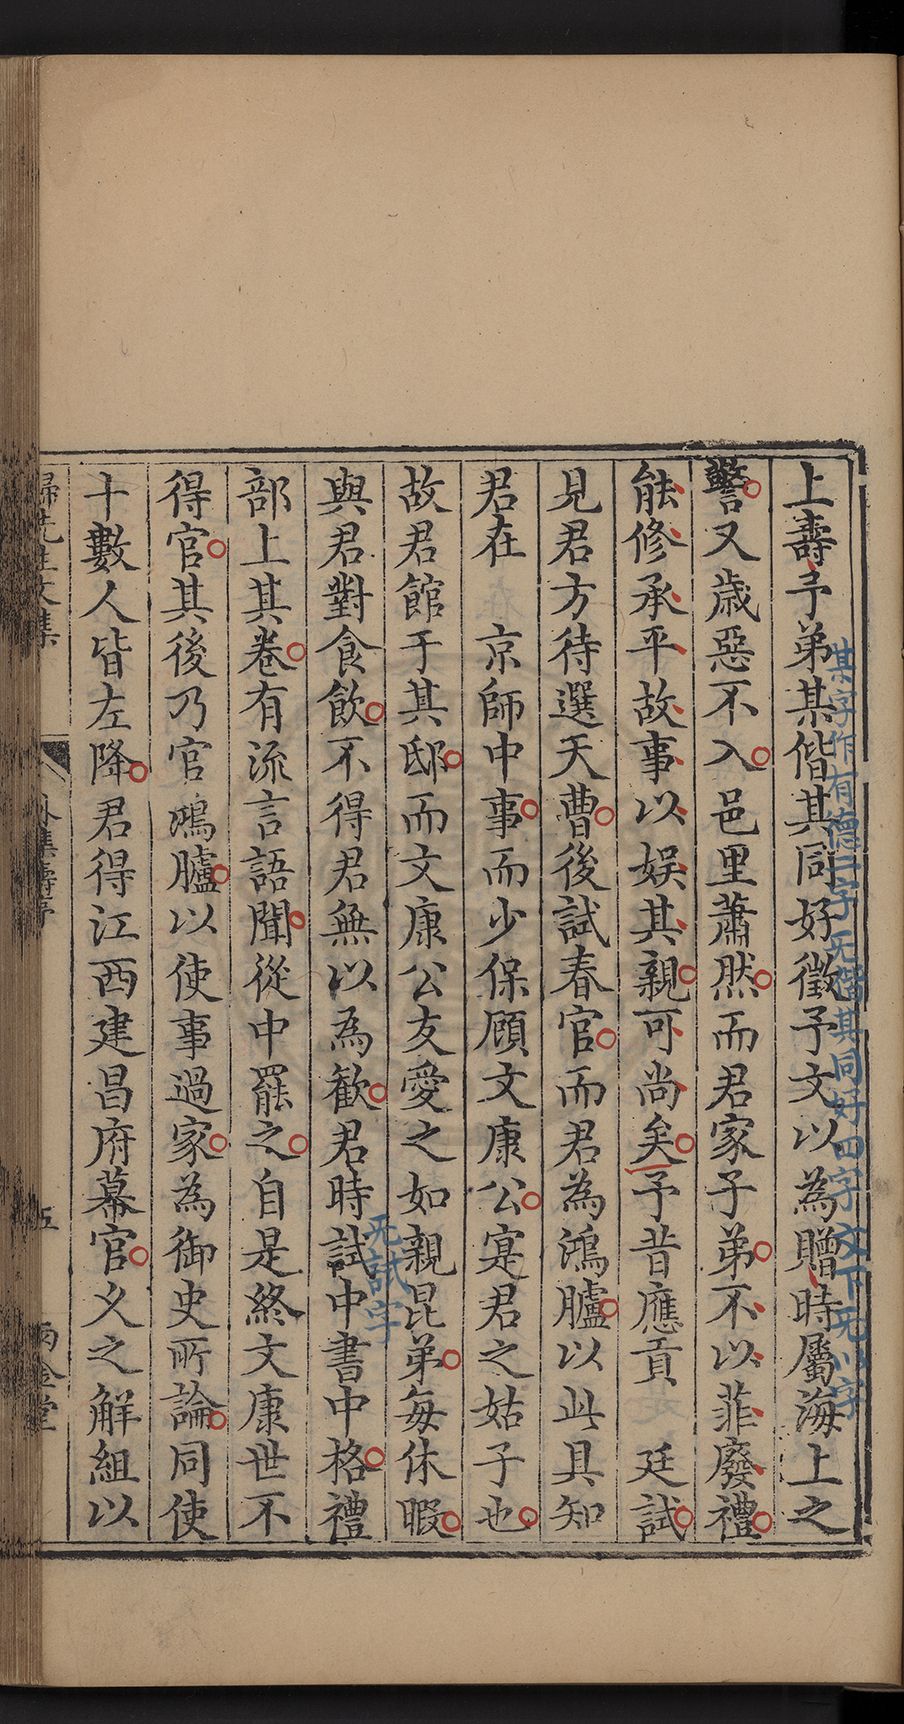 上壽予弟某偕其同好徵予文以為贈時屬海上之
某字作有德二字无偕其同好四字文下无以字
警又歲惡不入邑里蕭然而君家子弟不以菲廢禮
能修承平故事以娛其親可尚矣予昔應貢 廷試
見君方待選天曹後試春官而君為鴻臚以此具知
君在 京師中事而少保顧文康公寔君之姑子也
故君館于其邸而文康公友愛之如親昆弟每休暇
與君對食飲不得君無以為歡君時試中書中格禮
无試字
部上其卷有流言語聞從中罷之自是終文康世不
得官其後乃官鴻臚以使事過家為御史所論同使
十數人皆左降君得江西建昌府幕官久之解組以
歸先生文集 外集壽序 五 兩金堂